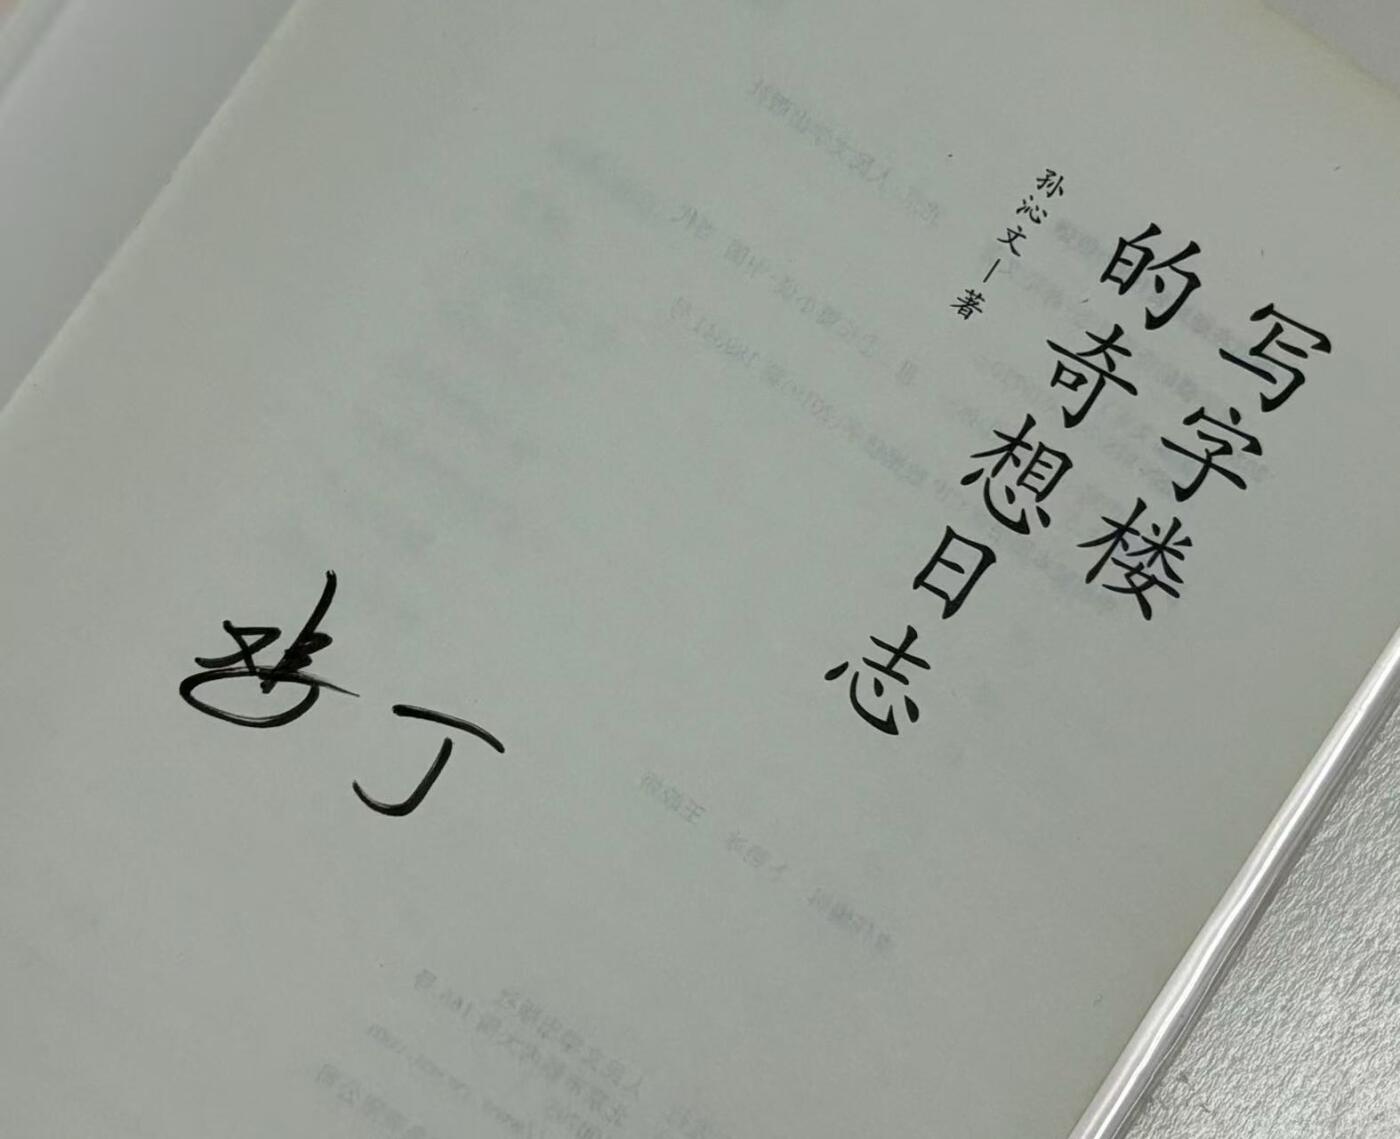 写字楼
的奇想日志
孙沁文|著
鸡丁